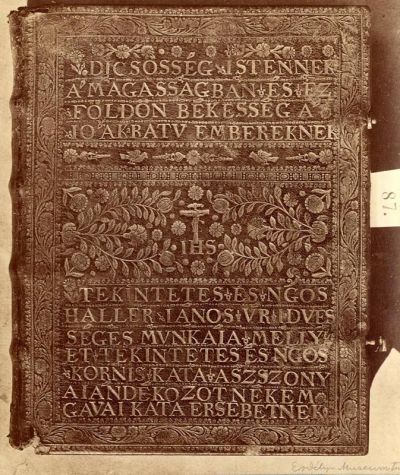 DICSŐSSÉG ISTENNEK
A MAGASSAGBAN ES EZ
FÖLDÖN BEKESSÉG A
IO AKRATV EMBEREKNEK
IHS
TEKINTETES ES NGOS
HALLER IANOS VRI DVES
SEGES MVNKAIA MELLY
ET TEKINTETES ES NGOS
KORNIS KATA ASZSZONY
AIANDEKOZOT NEKEM
GAVAI KATA ERSEBETNEK
87.
Erdélyi Museum